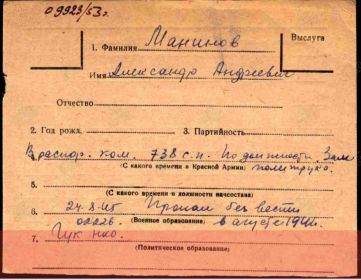 09923/53г.
Выслуга
1. Фамилия Манинов
Имя Александр Андреевич
Отчество
2. Год рожд. 3. Партийность
В распор. ком. 738 с.п. По должности Зам
(С какого времени в Красной Армии) политрука.
5.
(С какого времени в должности начсостава)
6. 24.8.45 Пропал без вести
02226. (Военное образование) в августе 1941г.
7. ГУК НКО.
(Политическое образование)